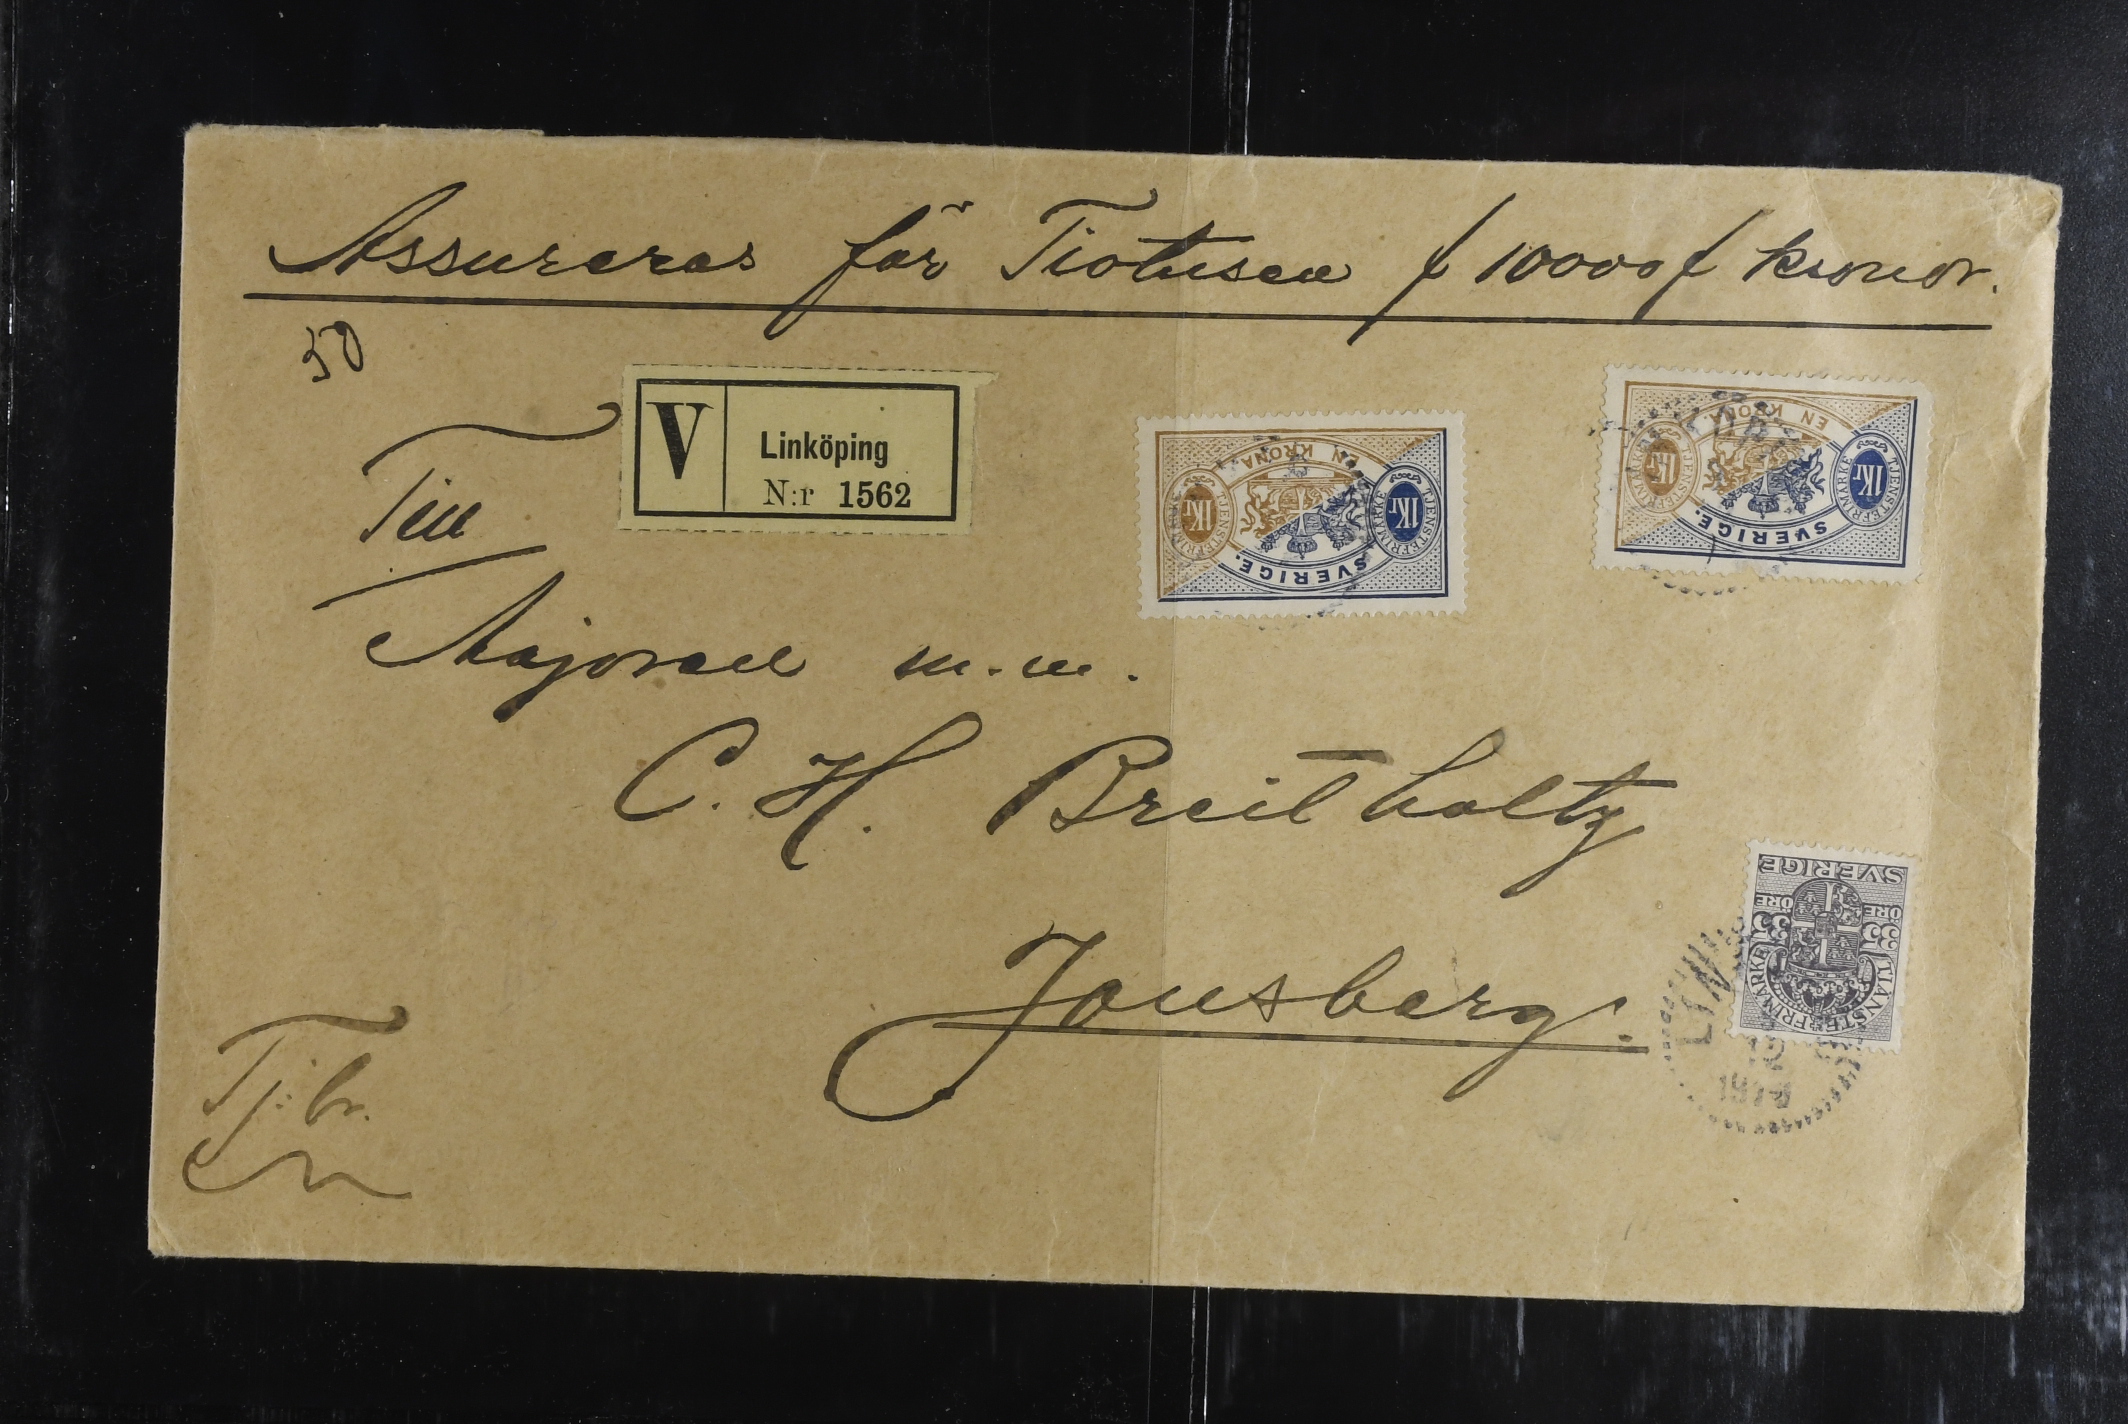 Assureras för Tiotusen / 10000 / kronor.
50
V Linköping
N:r 1562
Till
Majoren m.m.
C. H. Breitholtz
Jonsberg.
Tj:br.
EN KRONA.
1Kr TJENSTEFRIMÄRKE
1Kr TJENSTEFRIMÄRKE
SVERIGE.
EN KRONA.
1Kr TJENSTEFRIMÄRKE
1Kr TJENSTEFRIMÄRKE
SVERIGE.
SVERIGE
35 ÖRE 35 ÖRE
TJÄNSTEFRIMÄRKE
LIN
12